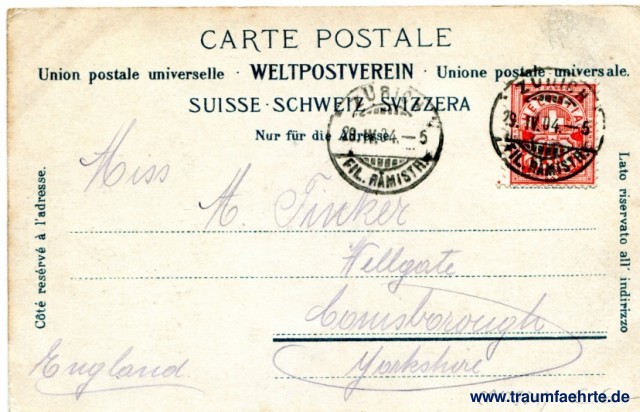 CARTE POSTALE
Union postale universelle · WELTPOSTVEREIN · Unione postale universale.
SUISSE · SCHWEIZ · SVIZZERA
Nur für die Adresse.
ZÜRICH
29. IV. 04. — 5
FIL. RÄMISTR.
ZÜRICH
29. IV. 04. — 5
FIL. RÄMISTR.
HELVETIA
Côté resérvé à l'adresse.
Lato riservato all' indirizzo
Miss
A. Tinker
Wellgate
Conisborough
Yorkshire
England
www.traumfaehrte.de